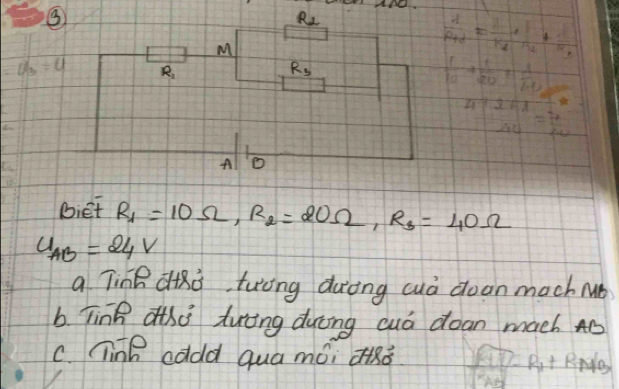 3
R2
M
R1
R3
A B
Biết R1 = 10Ω, R2 = 20Ω, R3 = 40Ω
UAB = 24V
a. Tính đtrở tương đương cuả đoạn mạch MB
b. Tính đtrở tương đương cuả đoạn mạch AB
c. Tính cđdđ qua mỗi đtrở.
= R1 + RMB